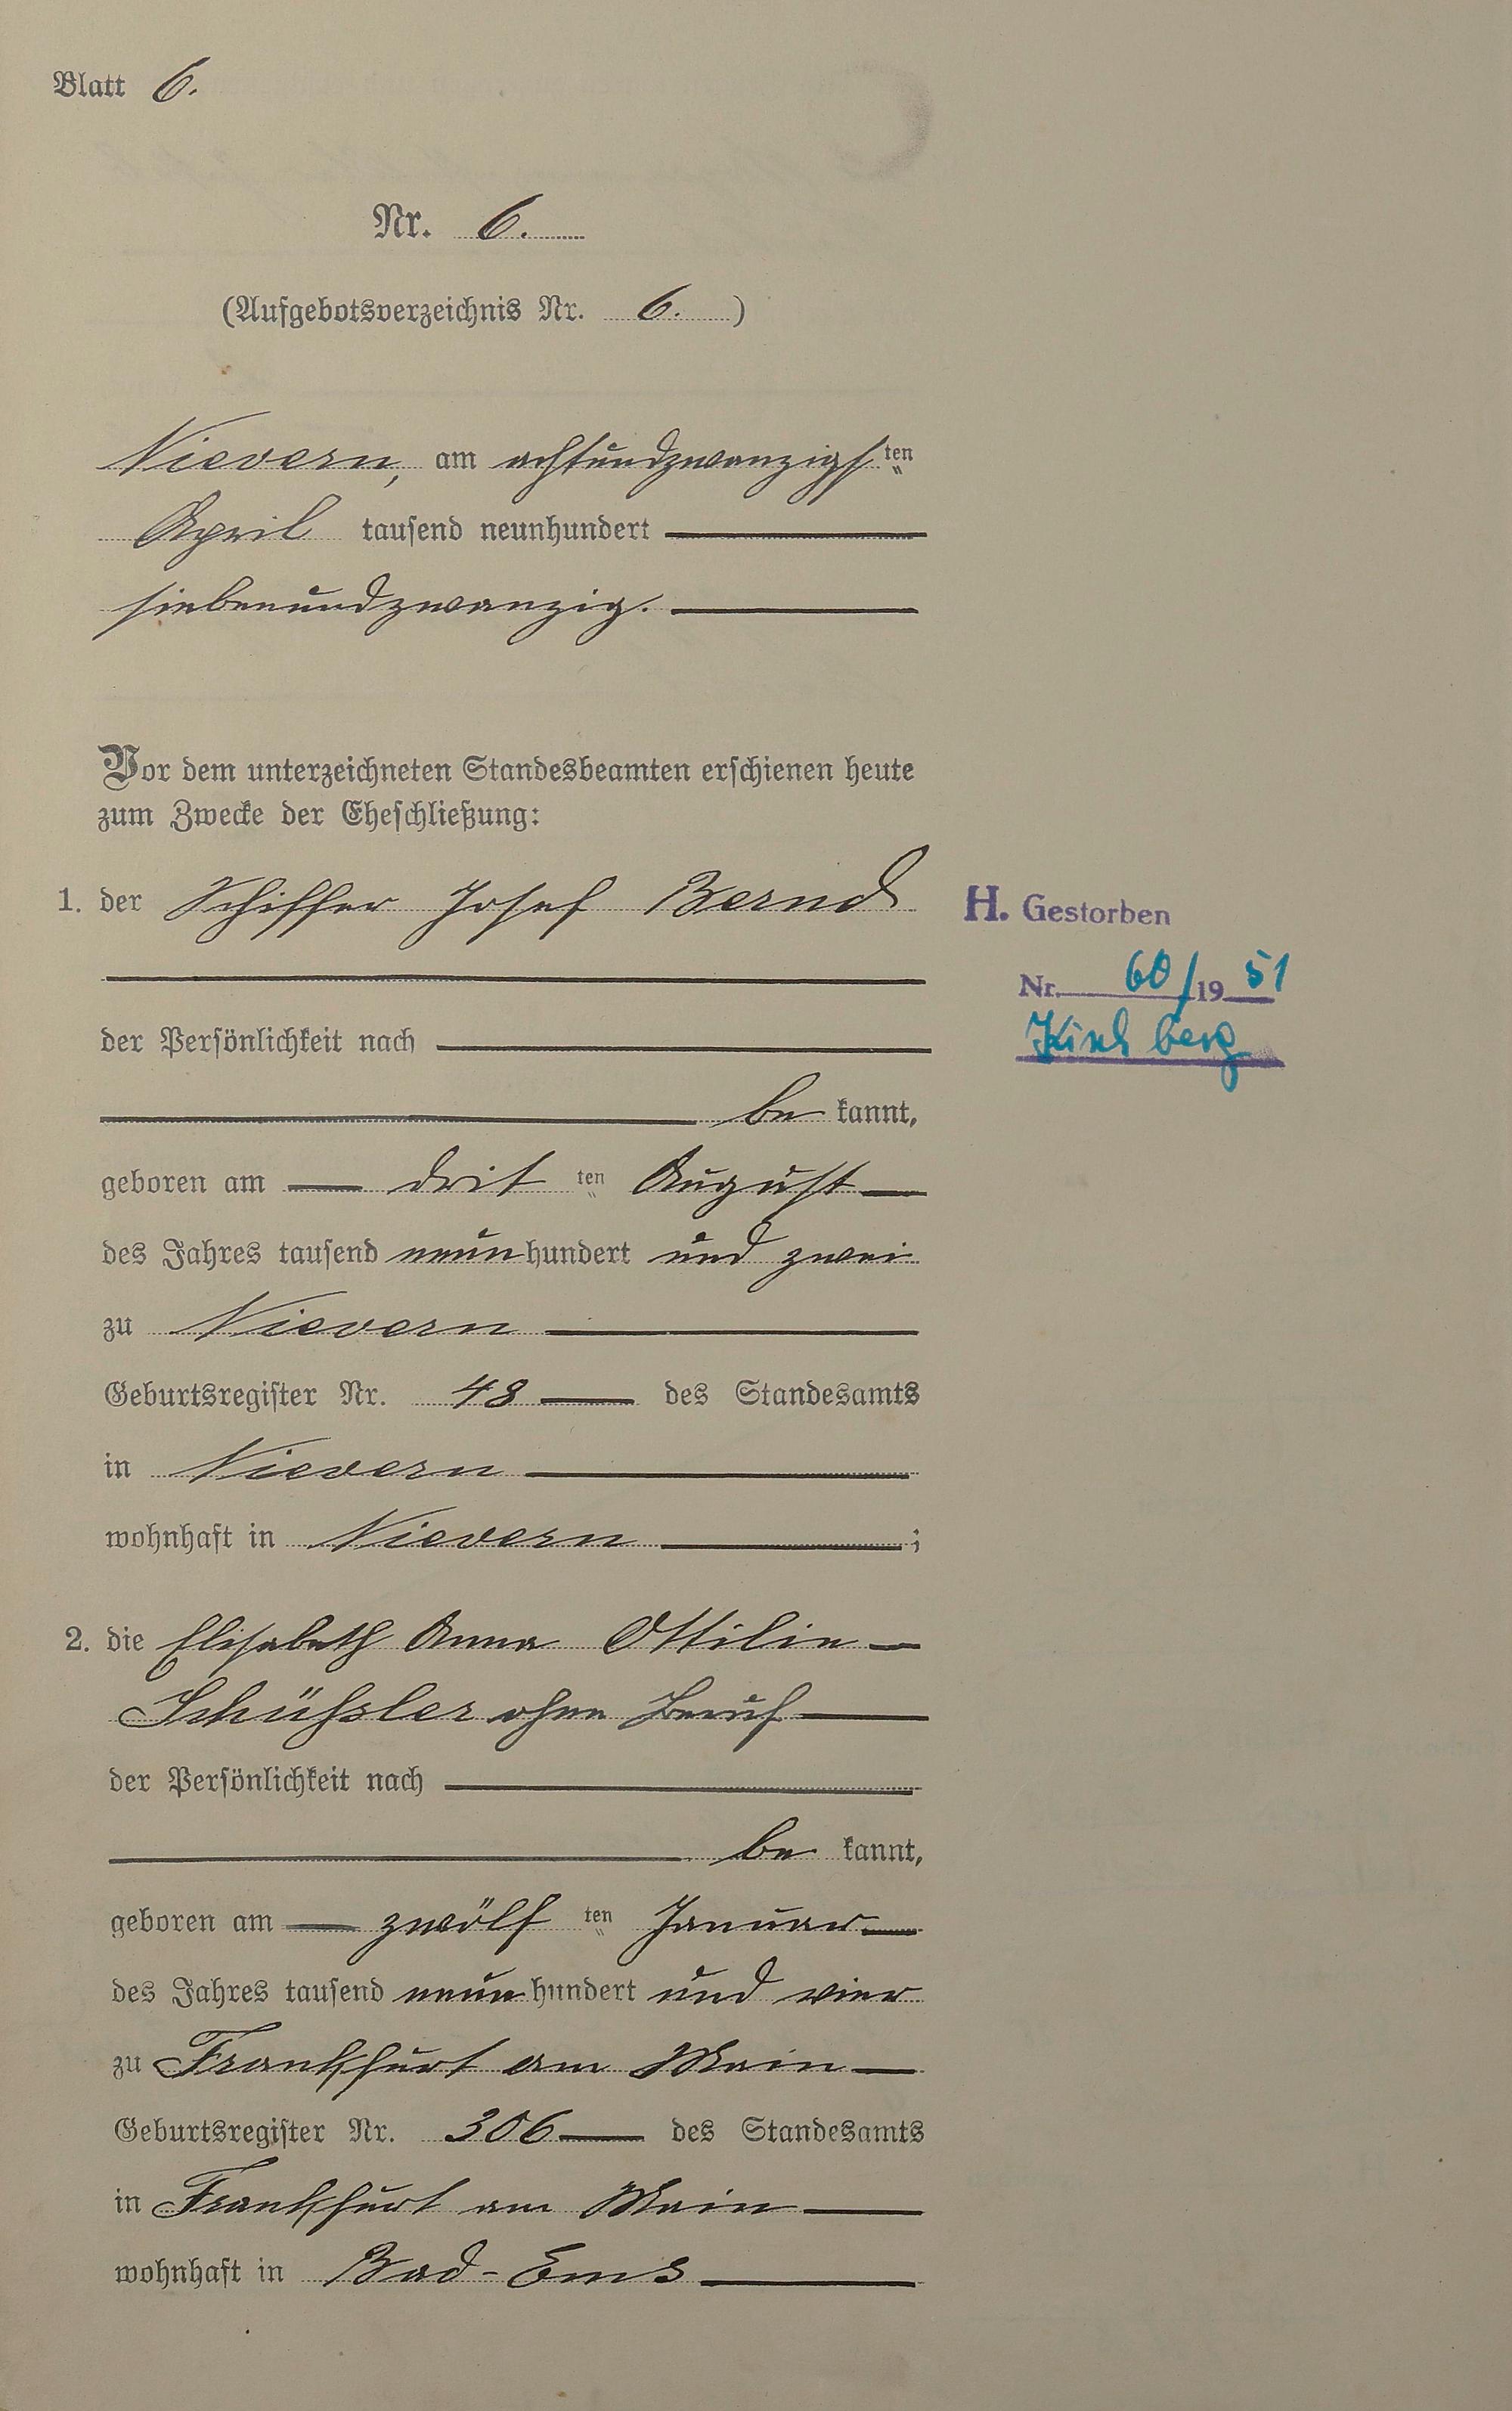 Blatt 6.
Nr. 6.
(Aufgebotsverzeichnis Nr. 6.)
Nievern, am achtundzwanzigsten
April tausend neunhundert
siebenundzwanzig.
Vor dem unterzeichneten Standesbeamten erschienen heute
zum Zwecke der Eheschließung:
1. der Schiffer Josef Bernd
H. Gestorben
Nr. 60/19 51
Kirchberg
der Persönlichkeit nach
be kannt,
geboren am drit ten August
des Jahres tausend neunhundert und zwei
zu Nievern
Geburtsregister Nr. 48 des Standesamts
in Nievern
wohnhaft in Nievern ;
2. die Elisabeth Anna Ottilie
Schüßler ohne Beruf
der Persönlichkeit nach
be kannt,
geboren am zwölf ten Januar
des Jahres tausend neunhundert und vier
zu Frankfurt am Main
Geburtsregister Nr. 306 des Standesamts
in Frankfurt am Main
wohnhaft in Bad-Ems